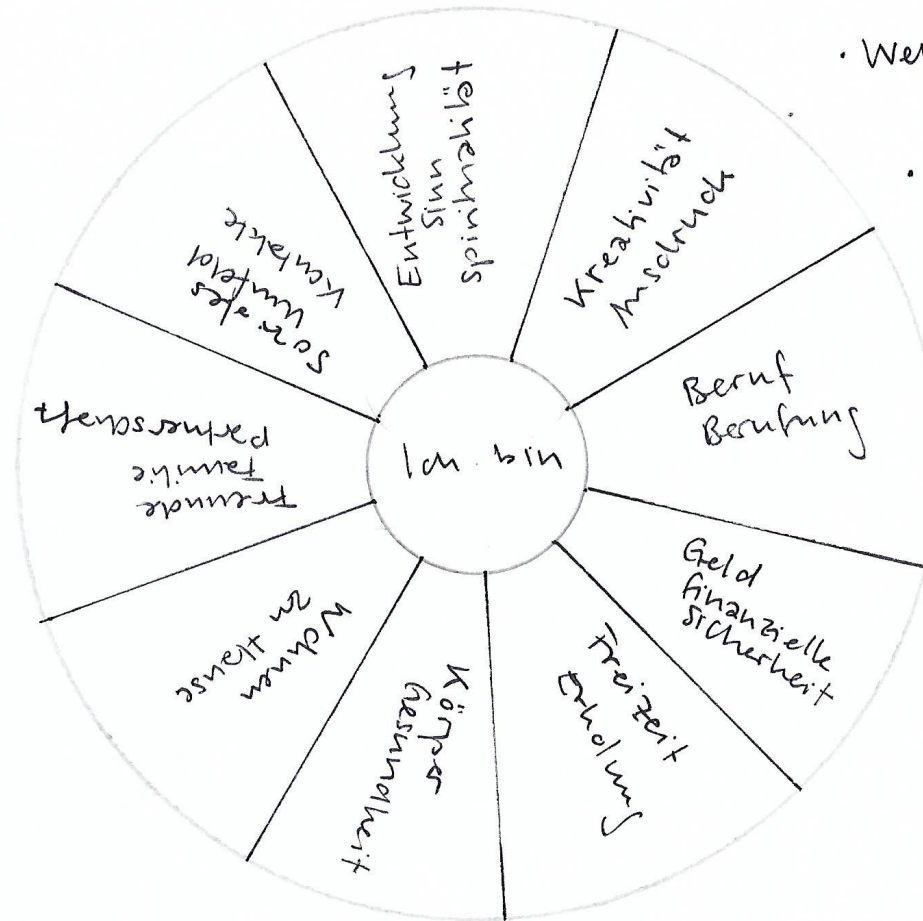 Ich bin
Entwicklung
Sinn
Spiritualität
Kreativität
Ausdruck
Beruf
Berufung
Geld
finanzielle
Sicherheit
Freizeit
Erholung
Körper
Gesundheit
Wohnen
zu Hause
Freunde
Familie
Partnerschaft
Soziales
Umfeld
Kontakte